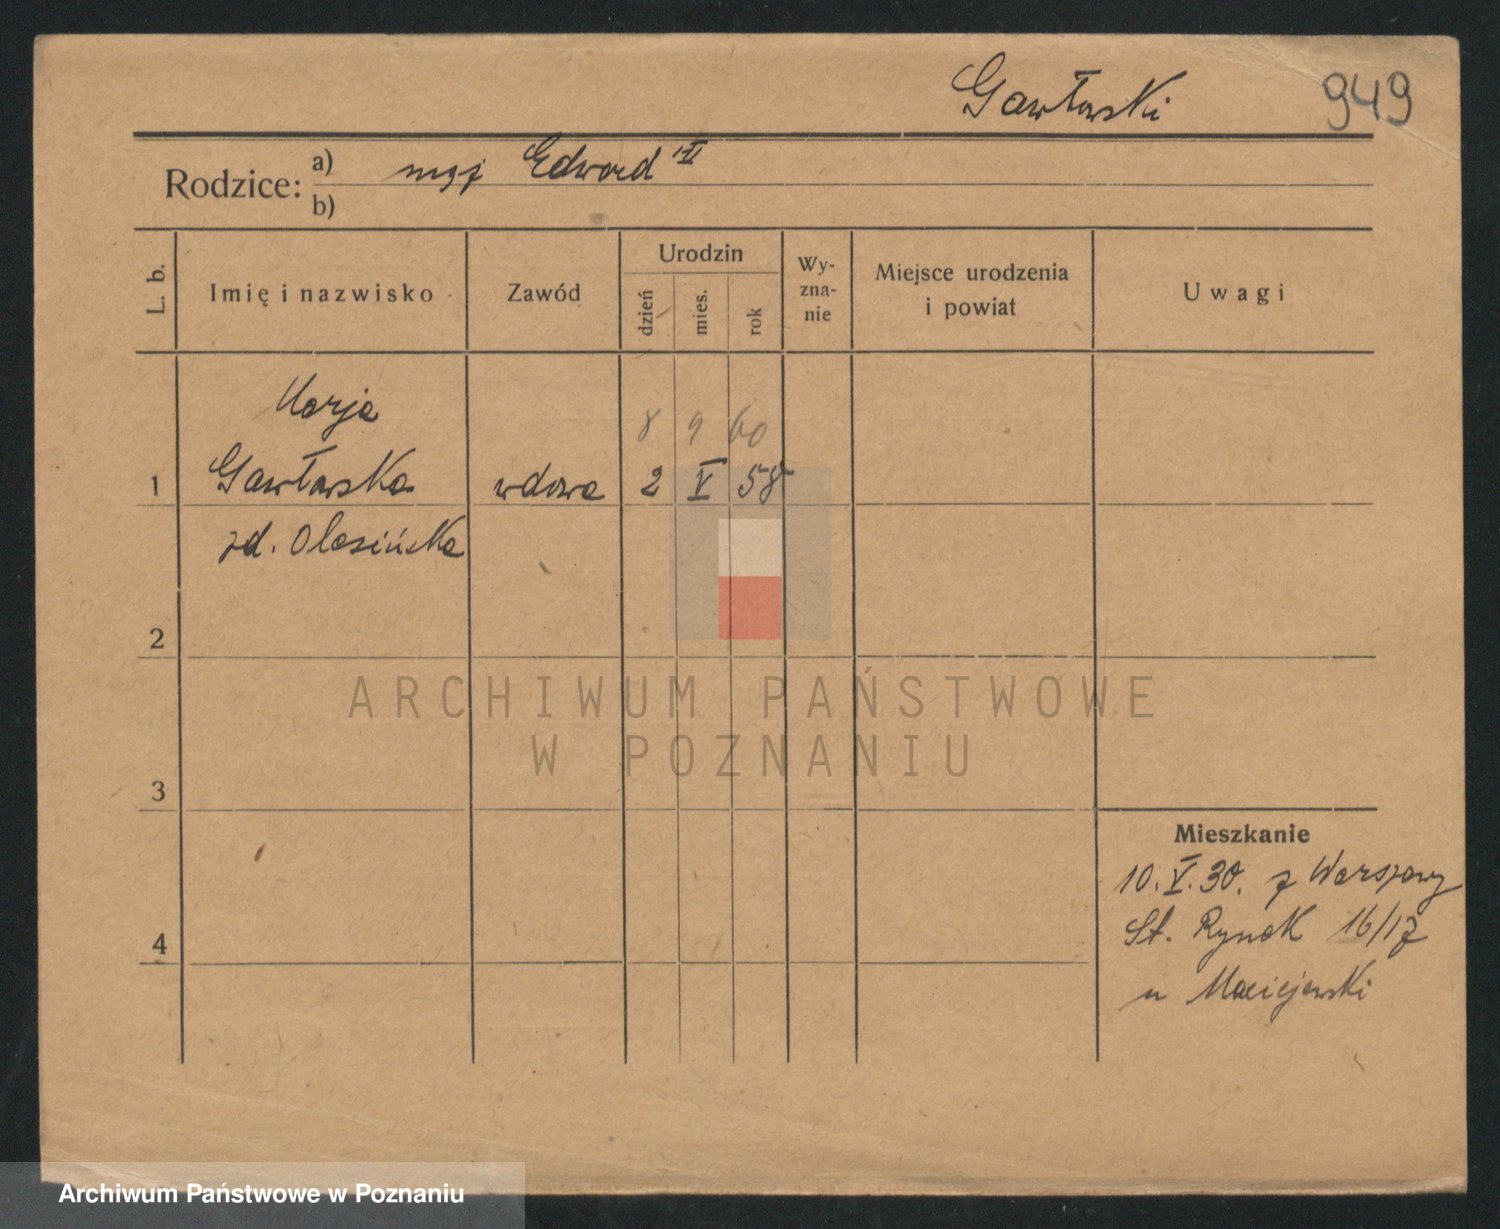 Gawłowski 949
Rodzice: a) mąż Edward
b)
L. b. Imię i nazwisko Zawód Urodzin dzień mies. rok Wyzna-nie Miejsce urodzenia i powiat Uwagi
Marja 8 9 60
1 Gawłowska wdowa 2 V 58
zd. Olesińska
2
ARCHIWUM PAŃSTWOWE
W POZNANIU
3
Mieszkanie
10.V.30. z Warszawy
4 St. Rynek 16/17
u Maciejewski
Archiwum Państwowe w Poznaniu